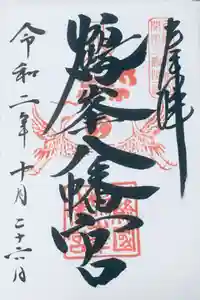 奉拝
鶴峯八幡宮
令和二年十月二十六日